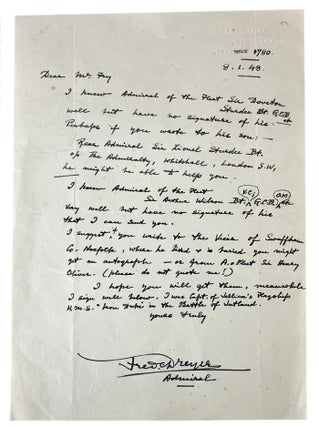 4780.
8. 1. 48.
Dear Mr. Fry
I knew Admiral of the Fleet Sir Doveton
Sturdee Bt. G.C.B. etc
well but have no signature of his.
Perhaps if you wrote to his son:—
Rear Admiral Sir Lionel Sturdee Bt.
c/o The Admiralty, Whitehall, London S.W,
he might be able to help you.
I knew Admiral of the Fleet
Sir Arthur Wilson Bt. V.C, G.C.B, O.M
very well but have no signature of his
that I can send you.
I suggest you write to the Vicar of Swaffham
Co. Norfolk, where he lived & is buried you might
get an autograph — or from A. of Fleet Sir Henry
Oliver. (Please do not quote me!)
I hope you will get them, meanwhile
I sign well below. I was Capt. of Jellicoe's Flagship
H.M.S. "Iron Duke" in the Battle of Jutland.
Yours truly
Fred C Dreyer
Admiral